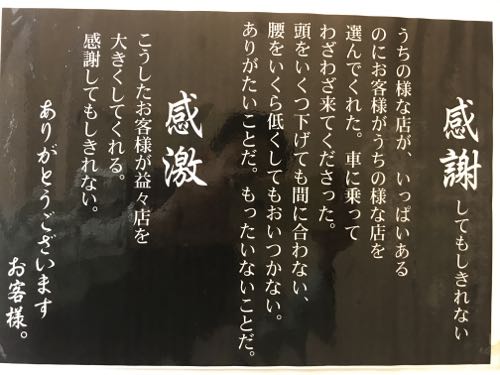 感謝してもしきれない
うちの様な店が、いっぱいある
のにお客様がうちの様な店を
選んでくれた。車に乗って
わざわざ来てくださった。
頭をいくつ下げても間に合わない、
腰をいくら低くしてもおいつかない。
ありがたいことだ。もったいないことだ。
感激
こうしたお客様が益々店を
大きくしてくれる。
感謝してもしきれない。
ありがとうございます
お客様。